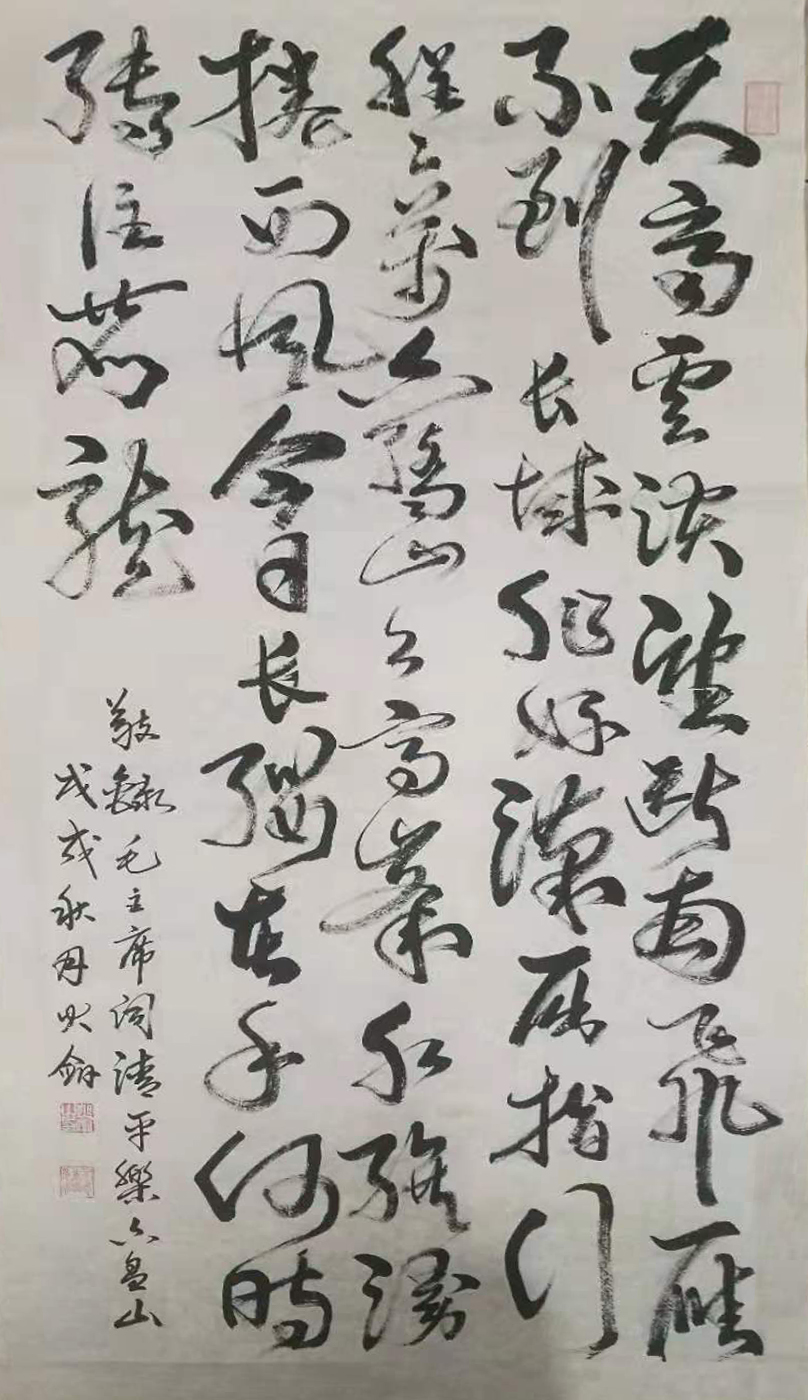 天高雲淡望断南飛雁
不到长城非好漢屈指行
程二萬六盤山上高峯红旗漫
捲西風今日长缨在手何時
缚住蒼龍
敬錄毛主席词清平樂六盘山
戊戌秋月